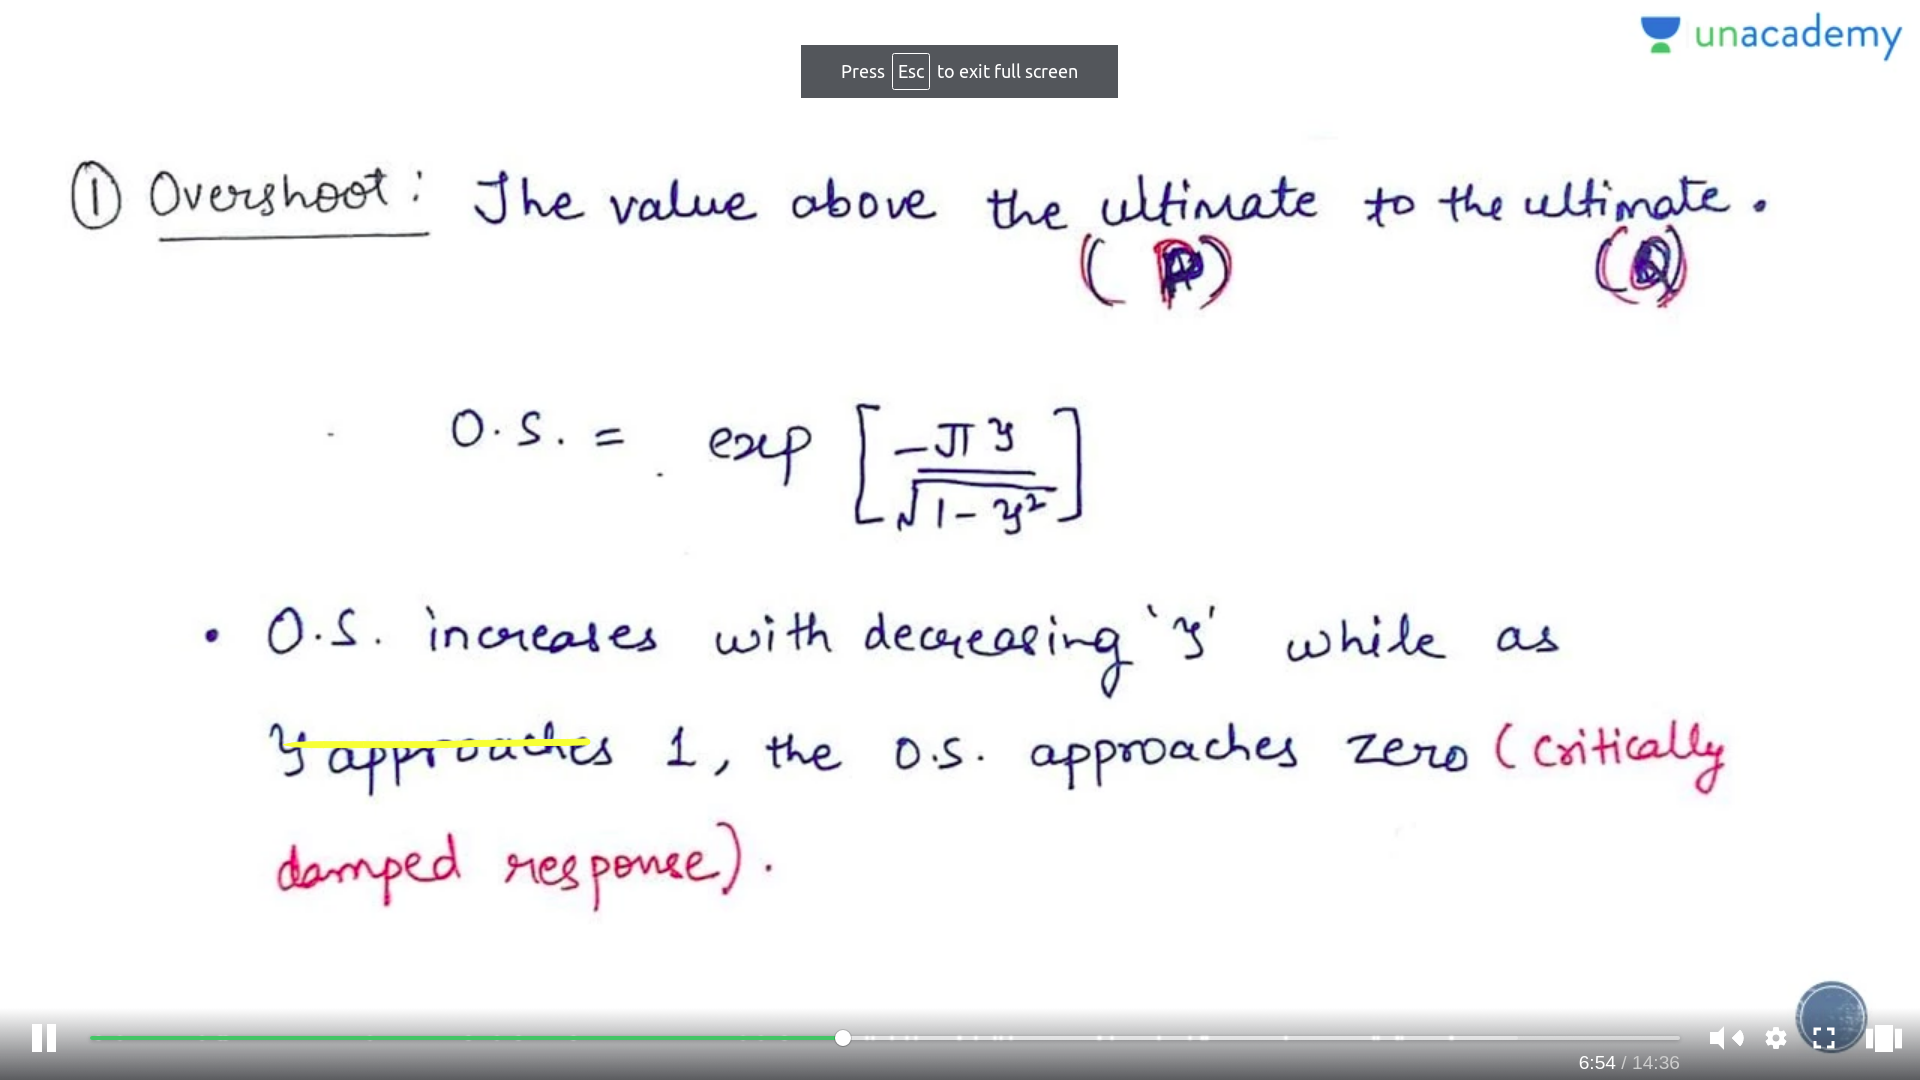 unacademy
Press Esc to exit full screen
① Overshoot: The value above the ultimate to the ultimate.
( ) ( )
O.S. = exp [ -π ξ / √1 - ξ² ]
• O.S. increases with decreasing 'ξ' while as
ξ approaches 1, the O.S. approaches zero (critically
damped response).
6:54 / 14:36